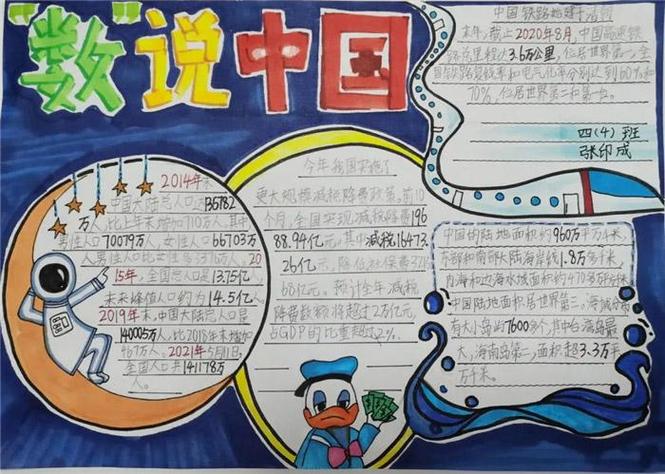 “数”说中国
中国铁路
末年，截止2020年8月，中国高速铁
路总里程达3.6万公里，位居世界第一，全
国铁路复线率和电气化率分别达到60%和
70%，位居世界第二和第一位。
四（4）班
张印成
2014年末
中国大陆总人口达136782
万人，比上年末增加710万人，其中
男性人口70079万人，女性人口66703万
人，男性人口比女性多3376万人，20
15年，全国总人口是13.75亿，
未来峰值人口约为14.5亿人。
2019年末，中国大陆总人口是
140005万人，比2018年末增加
467万人。2021年5月11日
全国人口共141178万
人。
今年我国实施了
更大规模减税降费政策。前10
个月，全国实现减税降费196
88.94亿元，其中减税16473.
26亿元，降低社保费321
68亿元。预计全年减税
降费数额将超过2万亿元，
占GDP的比重超过2%。
中国的陆地面积约960万平方千米，
东部和南部大陆海岸线1.8万多千米，
内海和边海水域面积约470多万平方千米。
中国陆地面积居世界第三，海域分布
有大小岛屿7600多个，其中台湾岛最
大，海南岛第二，面积超3.3万平
方千米。